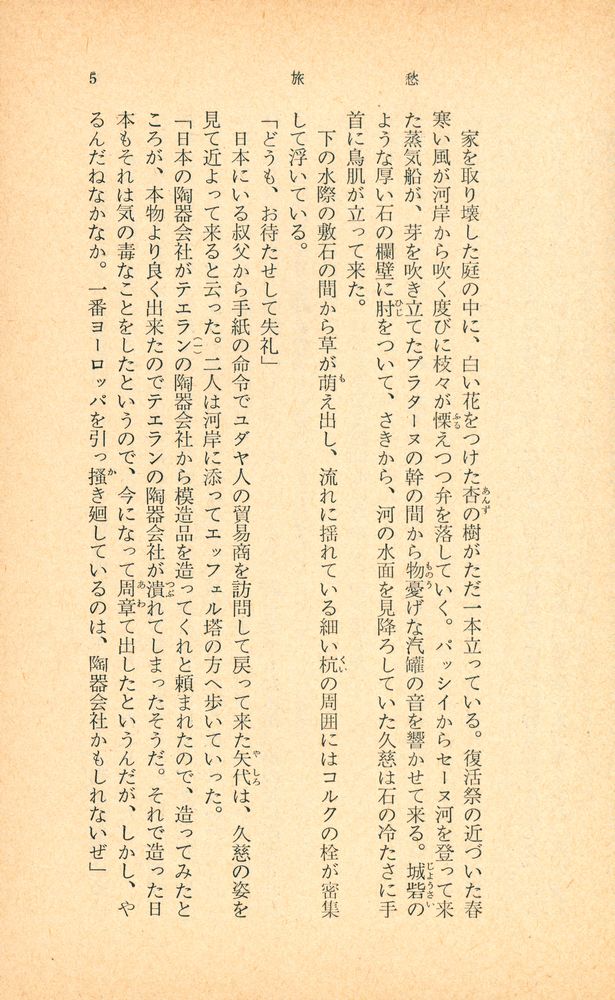 旅愁
5
家を取り壊した庭の中に、白い花をつけた杏の樹がただ一本立っている。復活祭の近づいた春
寒い風が河岸から吹く度びに枝々が慄えつつ弁を落していく。パッシイからセーヌ河を登って来
た蒸気船が、芽を吹き立てたプラターヌの幹の間から物憂げな汽罐の音を響かせて来る。城砦の
ような厚い石の欄壁に肘をついて、さきから、河の水面を見降ろしていた久慈は石の冷たさに手
首に鳥肌が立って来た。
下の水際の敷石の間から草が萌え出し、流れに揺れている細い杭の周囲にはコルクの栓が密集
して浮いている。
「どうも、お待たせして失礼」
日本にいる叔父から手紙の命令でユダヤ人の貿易商を訪問して戻って来た矢代は、久慈の姿を
見て近よって来ると云った。二人は河岸に添ってエッフェル塔の方へ歩いていった。
「日本の陶器会社がテエランの陶器会社から模造品を造ってくれと頼まれたので、造ってみたと
ころが、本物より良く出来たのでテエランの陶器会社が潰れてしまったそうだ。それで造った日
本もそれは気の毒なことをしたというので、今になって周章て出したというんだが、しかし、や
るんだねなかなか。一番ヨーロッパを引っ掻き廻しているのは、陶器会社かもしれないぜ」